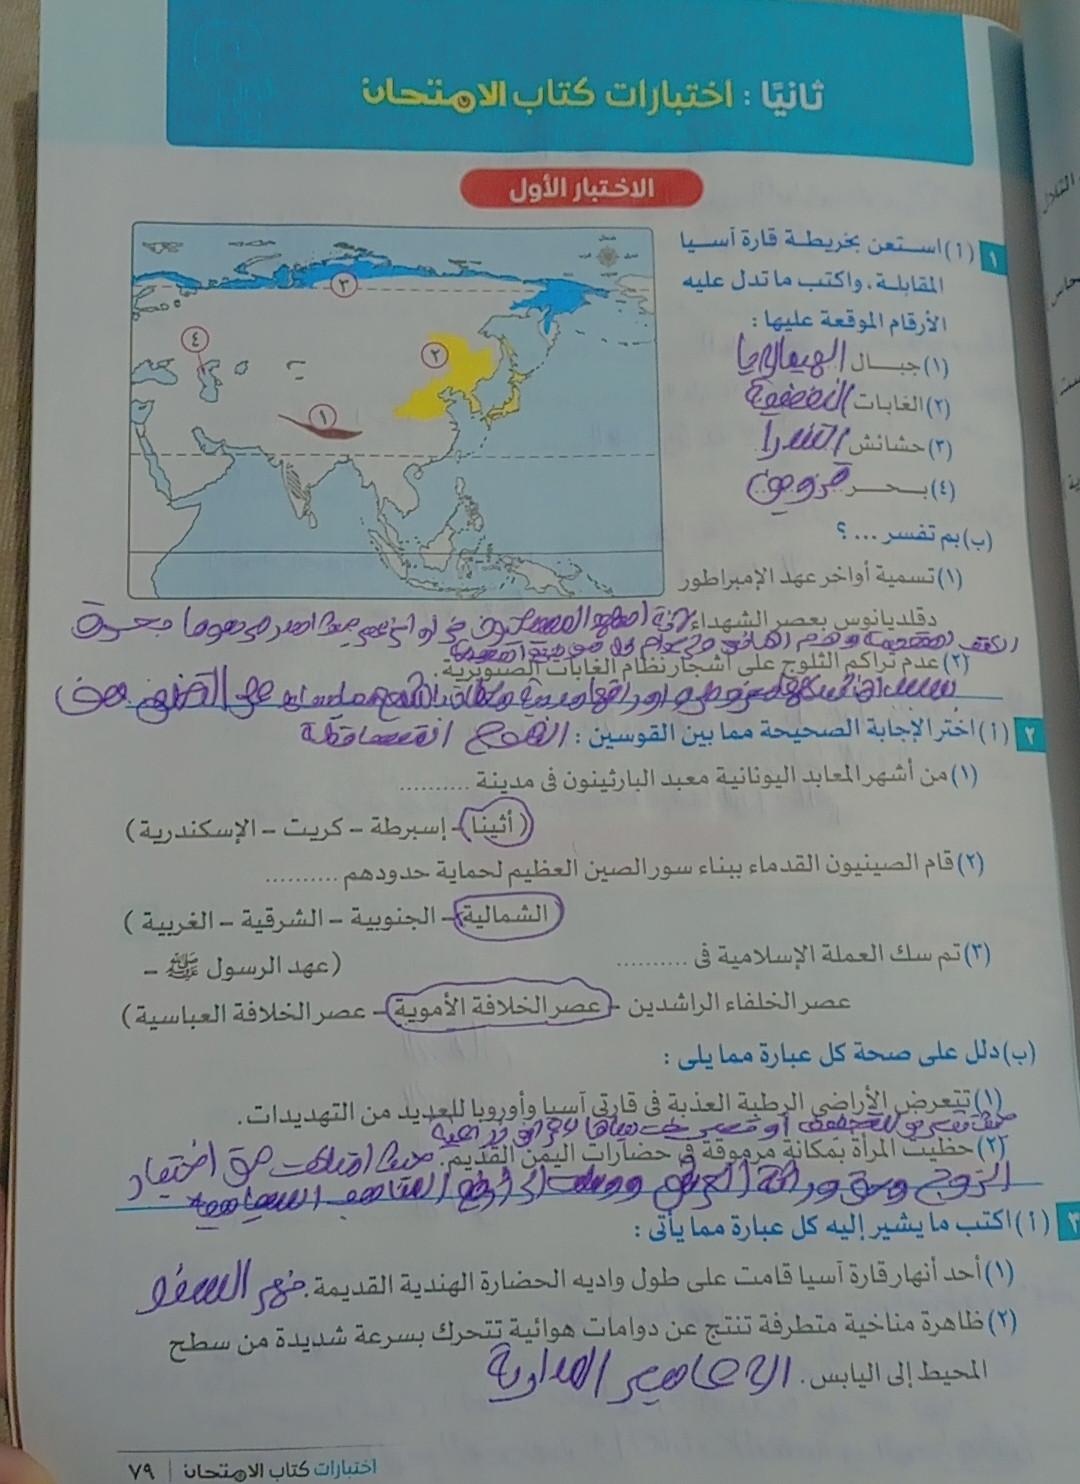 ثانيًا : اختبارات كتاب الامتحان
الاختبار الأول
١ (أ) استعن بخريطة قارة آسيا
المقابلة، واكتب ما تدل عليه
الأرقام الموقعة عليها :
(١) جبال الهيمالايا
(٢) الغابات النفضية
(٣) حشائش التندرا
(٤) بحر قزوين
٣
٤
٢
١
(ب) بم تفسر ... ؟
(١) تسمية أواخر عهد الإمبراطور
دقلديانوس بعصر الشهداء
(٢) عدم تراكم الثلوج على أشجار نظام الغابات الصنوبرية.
٢ (أ) اختر الإجابة الصحيحة مما بين القوسين :
(١) من أشهر المعابد اليونانية معبد البارثينون فى مدينة ..........
(أثينا - إسبرطة - كريت - الإسكندرية)
(٢) قام الصينيون القدماء ببناء سور الصين العظيم لحماية حدودهم ..........
(الشمالية - الجنوبية - الشرقية - الغربية)
(٣) تم سك العملة الإسلامية فى ..........
(عهد الرسول ﷺ -
عصر الخلفاء الراشدين - عصر الخلافة الأموية - عصر الخلافة العباسية)
(ب) دلل على صحة كل عبارة مما يلى :
(١) تتعرض الأراضى الرطبة العذبة فى قارتى آسيا وأوروبا للعديد من التهديدات.
(٢) حظيت المرأة بمكانة مرموقة فى حضارات اليمن القديم. حيث امتلكت حق اختيار
الزوج وحق وراثة العرش ووصلت إلى أرفع المناصب السياسية
٣ (أ) اكتب ما يشير إليه كل عبارة مما يأتى :
(١) أحد أنهار قارة آسيا قامت على طول واديه الحضارة الهندية القديمة. نهر السند
(٢) ظاهرة مناخية متطرفة تنتج عن دوامات هوائية تتحرك بسرعة شديدة من سطح
المحيط إلى اليابس. الأعاصير المدارية
اختبارات كتاب الامتحان | ٧٩